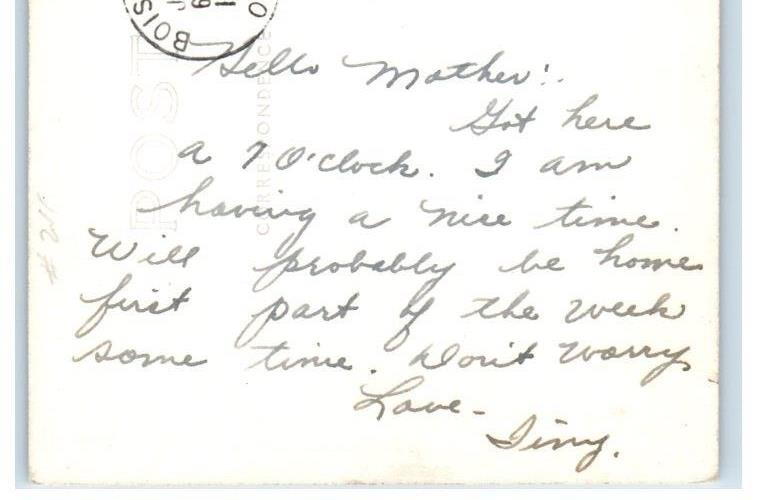 BOIS
Hello Mother!
Got here
a 7 O'clock. I am
having a nice time.
Will probably be home
first part of the week
some time. Don't worry
Love-
Tiny.
POST
CORRESPONDENCE